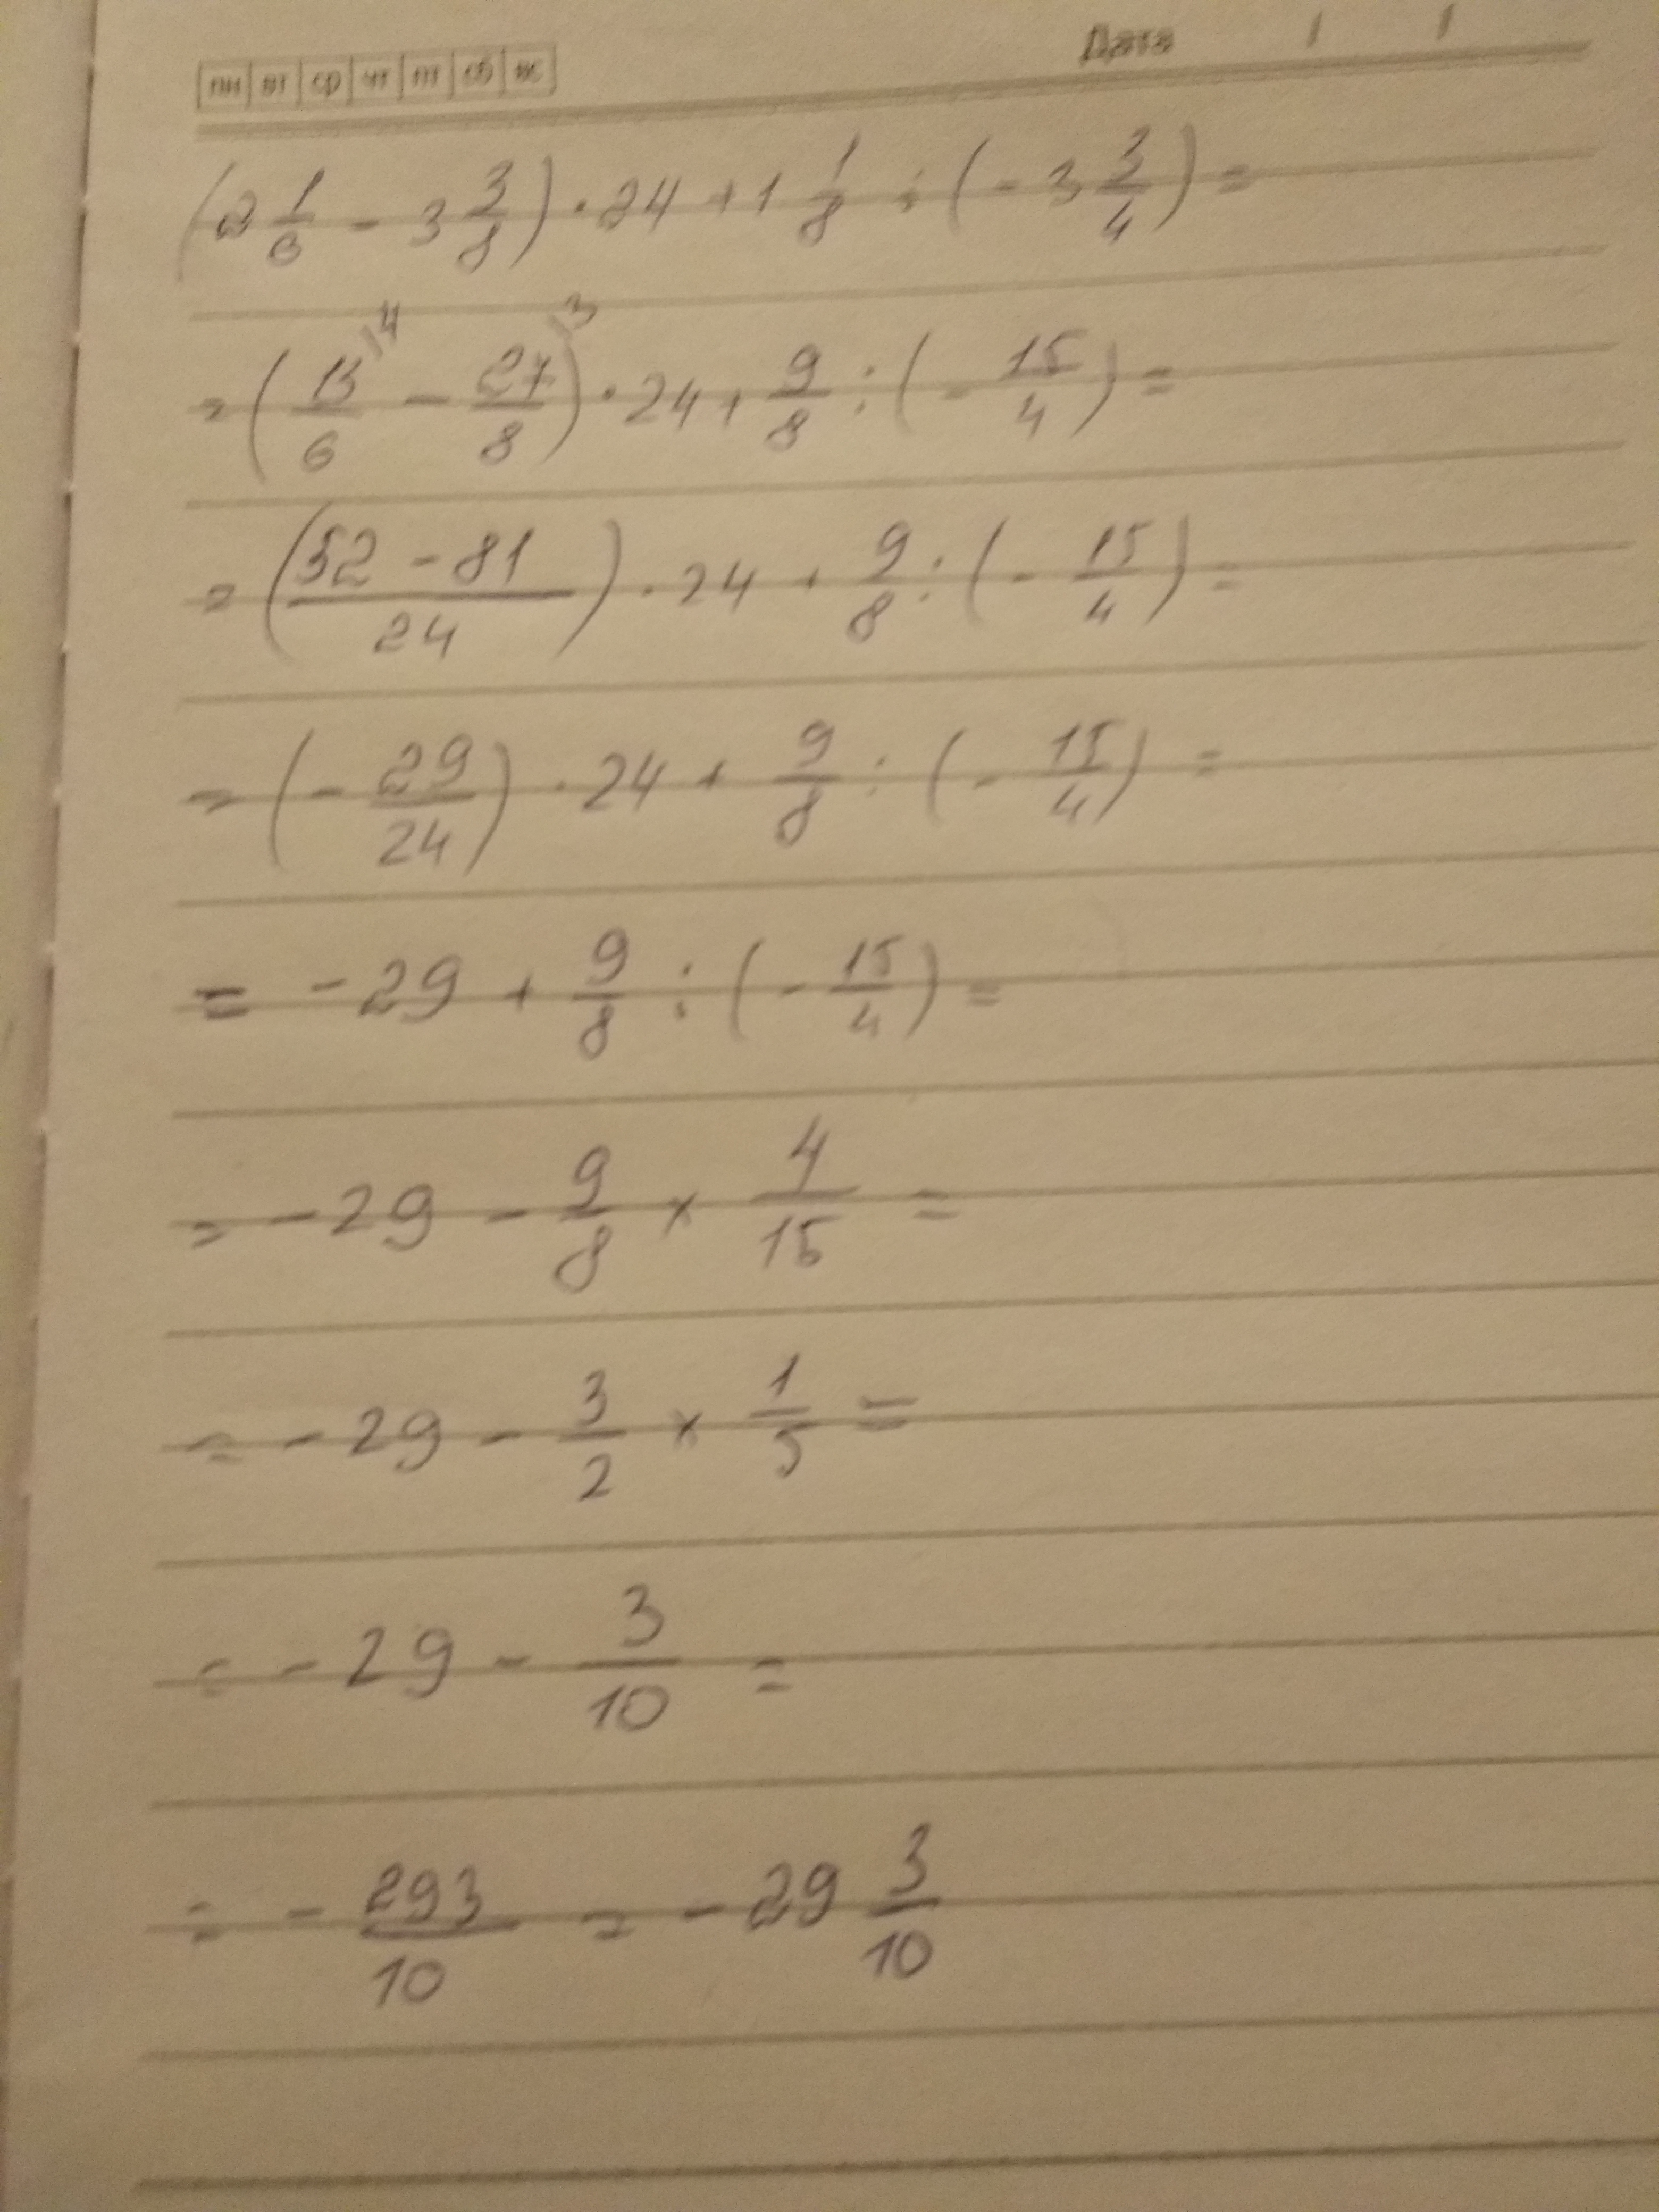 пн вт ср чт пт сб вс Дата / /
(2 1/6 - 3 3/8) · 24 + 1 1/8 : (- 3 3/4) =
= (13/6 \4 - 27/8 \3) · 24 + 9/8 : (- 15/4) =
= (52 - 81/24) · 24 + 9/8 : (- 15/4) =
= (- 29/24) · 24 + 9/8 : (- 15/4) =
= - 29 + 9/8 : (- 15/4) =
= - 29 - 9/8 × 4/15 =
= - 29 - 3/2 × 1/5 =
= - 29 - 3/10 =
= - 293/10 = - 29 3/10